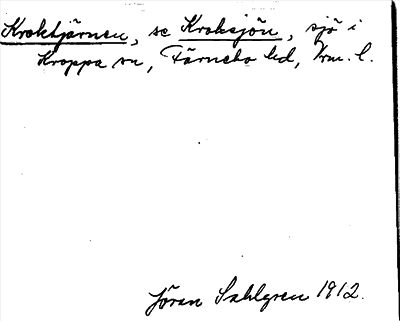 Kroktjärnen, se Kroksjön, sjö i
Kroppa sn, Färnebo hd, Vrm. l.
Jöran Sahlgren 1912.